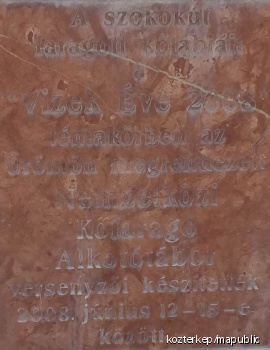 A szökőkút
faragott kőtábláit
a
"Vizek Éve 2008"
témakörben az
Ürömön megrendezett
Nemzetközi
Kőfaragó
Alkotótábor
versenyzői készítették
2008. június 12-15-e
között
kozterkep/mapublic